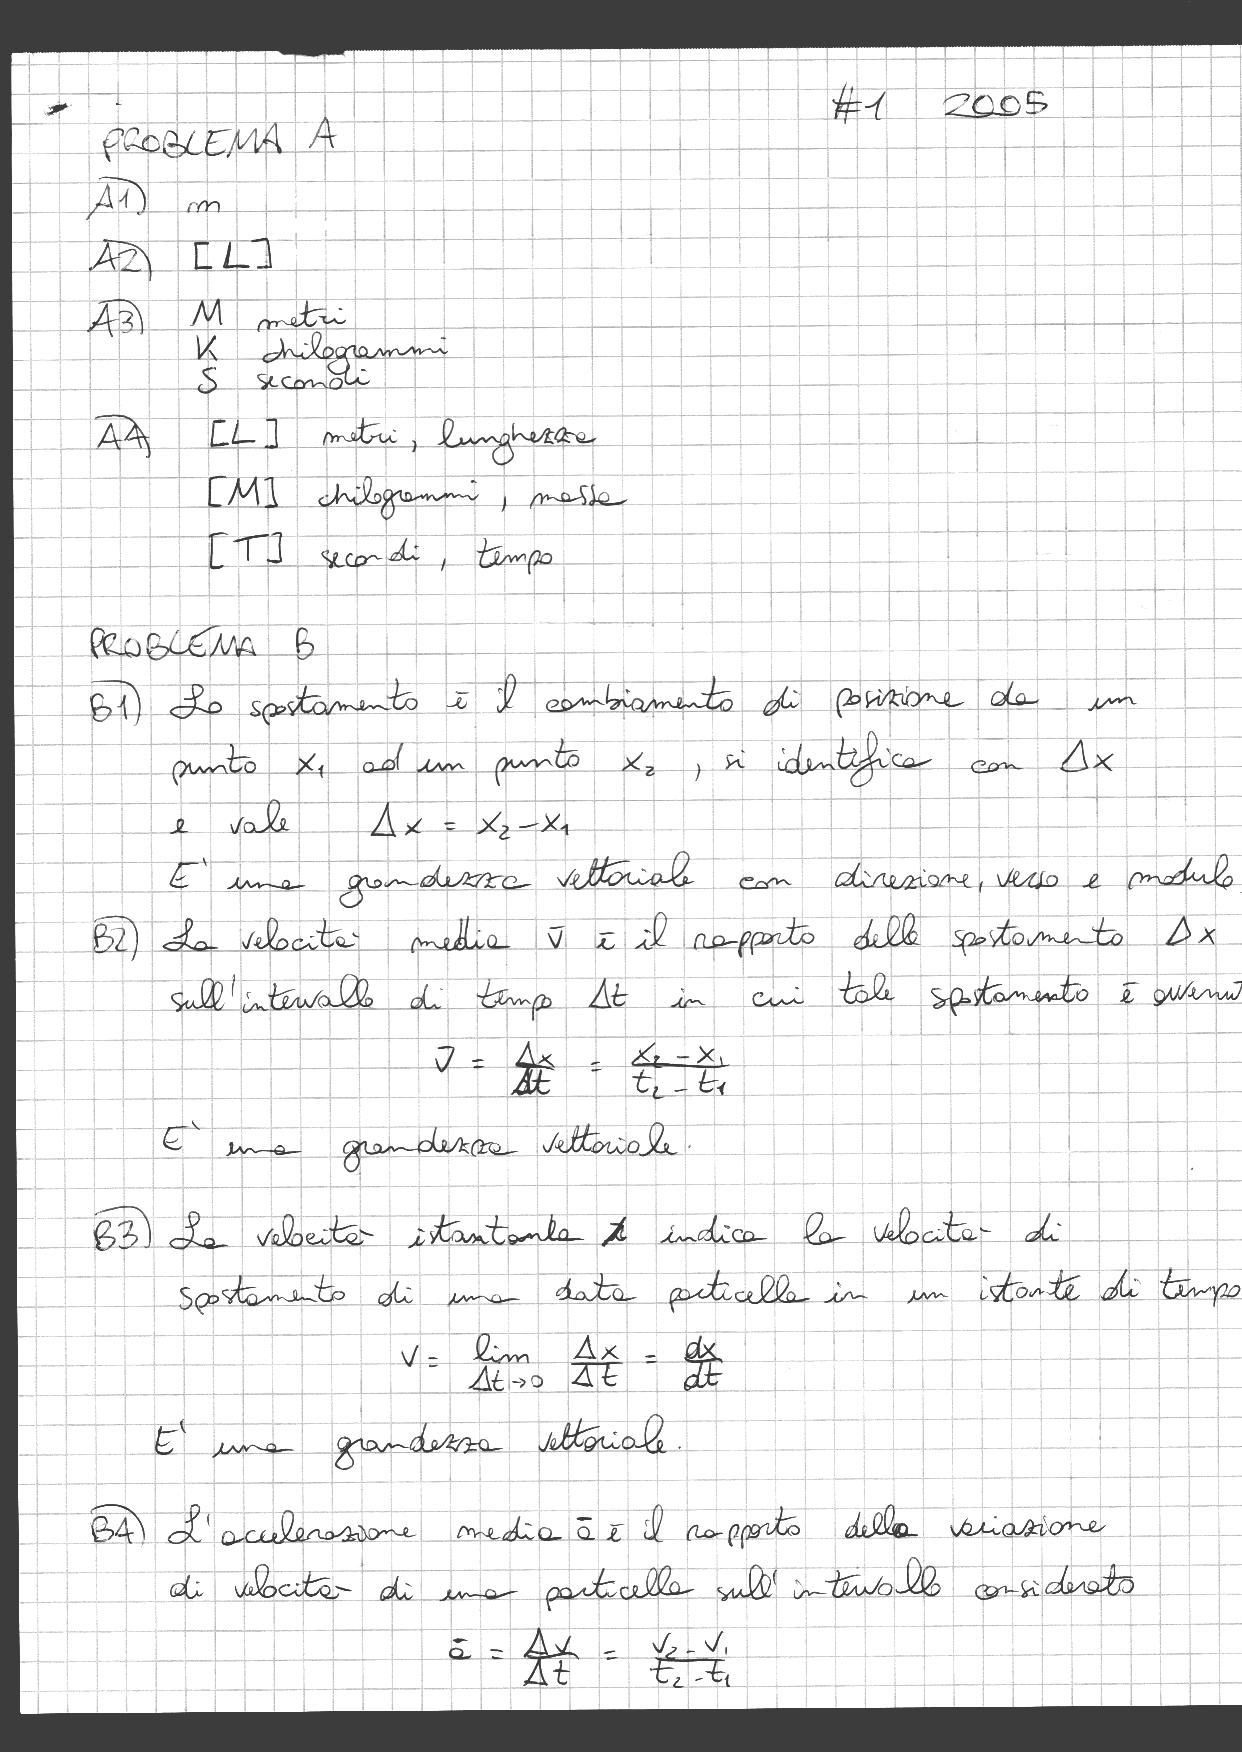 #1 2005
PROBLEMA A
A1) m
A2) [L]
A3) M metri
K chilogrammi
S secondi
A4) [L] metri, lunghezza
[M] chilogrammi, massa
[T] secondi, tempo
PROBLEMA B
B1) Lo spostamento è il cambiamento di posizione da un
punto x₁ ad un punto x₂, si identifica con Δx
e vale Δx = x₂-x₁
E' una grandezza vettoriale con direzione, verso e modulo
B2) La velocità media v̄ è il rapporto dello spostamento Δx
sull'intervallo di tempo Δt in cui tale spostamento è avvenut
v̄ = Δx/Δt = (x₂ - x₁)/(t₂ - t₁)
E' una grandezza vettoriale.
B3) La velocità istantanea indica la velocità di
spostamento di una data particella in un istante di tempo
v = lim Δt→0 Δx/Δt = dx/dt
E' una grandezza vettoriale.
B4) L'accelerazione media ā è il rapporto della variazione
di velocità di una particella sull'intervallo considerato
ā = Δv/Δt = (v₂ - v₁)/(t₂ - t₁)